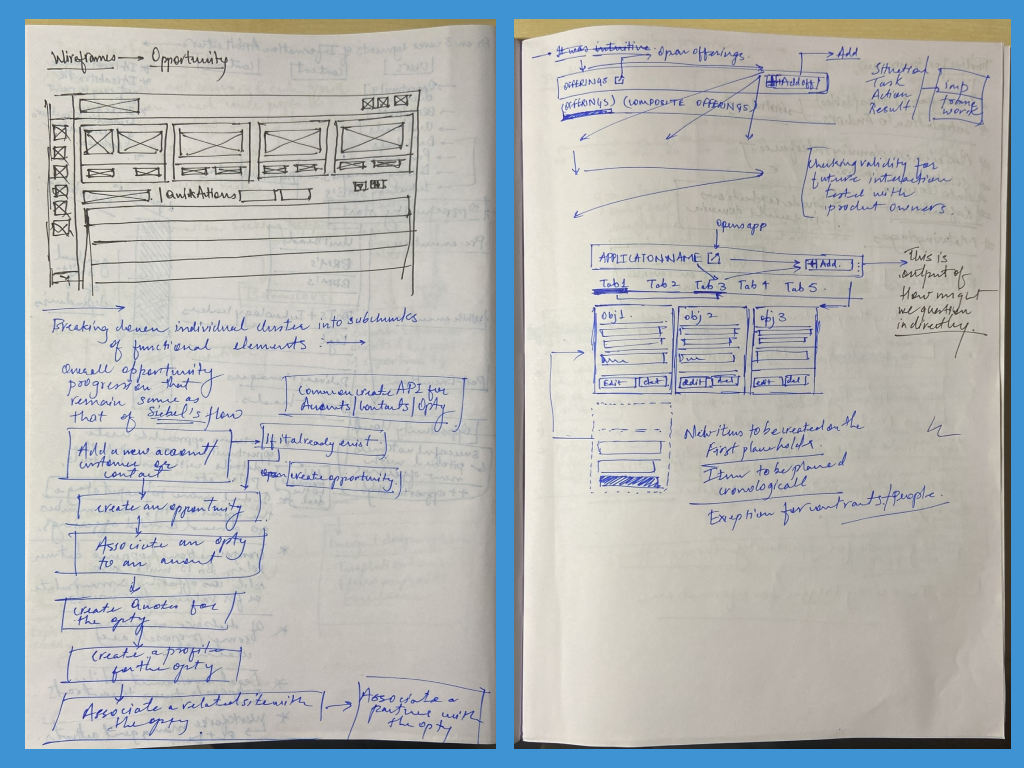 Wireframes → Opportunity
Quick Actions
Breaking down individual cluster into subchunks
of functional elements :→
Overall opportunity
progression that
remain same as
that of Siebel's flow
Common create API for
Accounts/Contacts/Opty
Add a new account/
customer or
contact
If it already exist
create opportunity
create an opportunity
Associate an opty
to an account
create Quotes for
the opty
create a profile
for the opty
Associate a related site with
the opty
Associate a
partner with
the opty
It was intuitive open offerings.
Add
OFFERINGS
+Add off
(OFFERINGS) (COMPOSITE OFFERINGS)
Situation
Task
Action
Result
imp
frame
work
Checking validity for
future interaction
tested with
product owners
opens app
APPLICATION NAME
+Add.
Tab 1 Tab 2 Tab 3 Tab 4 Tab 5.
This is
output of
How might
we question
indirectly.
Obj 1.
obj 2
obj 3
Edit
del
edit
del
edit
del
New items to be created on the
First placeholds.
Item to be placed
cronologicall
Exeption for contracts/people.